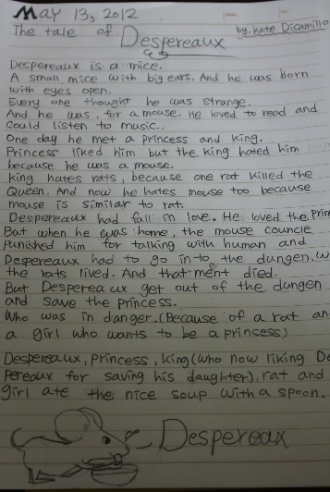 May 13, 2012
The tale of Despereaux by. Kate Dicamillo
Despereaux is a mice.
A small mice with big ears. And he was born
with eyes open.
Every one thought he was strange.
And he was, for a mouse. He loved to read and
Could listen to music.
One day he met a princess and king.
Princess liked him but the king hated him
because he was a mouse.
king hates rats, because one rat killed the
Queen. And now he hates mouse too because
mouse is similar to rat.
Despereaux had fall in love. He loved the prin
But when he was home, the mouse councle
punished him for talking with human and
Despereaux had to go into the dungen, w
the rats lived. And that ment died.
But Despereaux get out of the dungen
and save the princess.
Who was in danger. (Because of a rat an
a girl who wants to be a princess)
Despereaux, princess, king (who now liking De
pereaux for saving his daughter), rat and
girl ate the nice soup with a spoon.
Despereaux